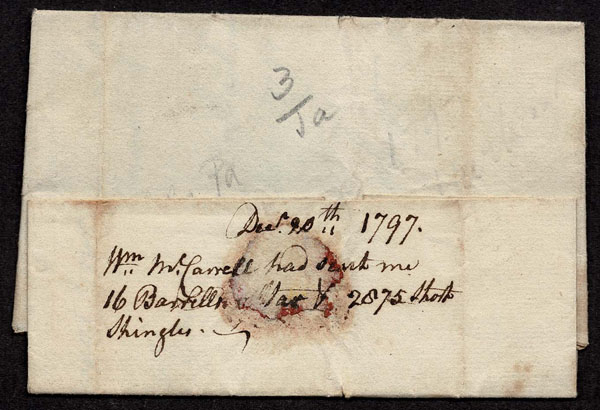 3/
Pa
Decr. 20th 1797.
Wm McCarrell had sent me
16 Barrells Tar & 2875 Short
Shingles.